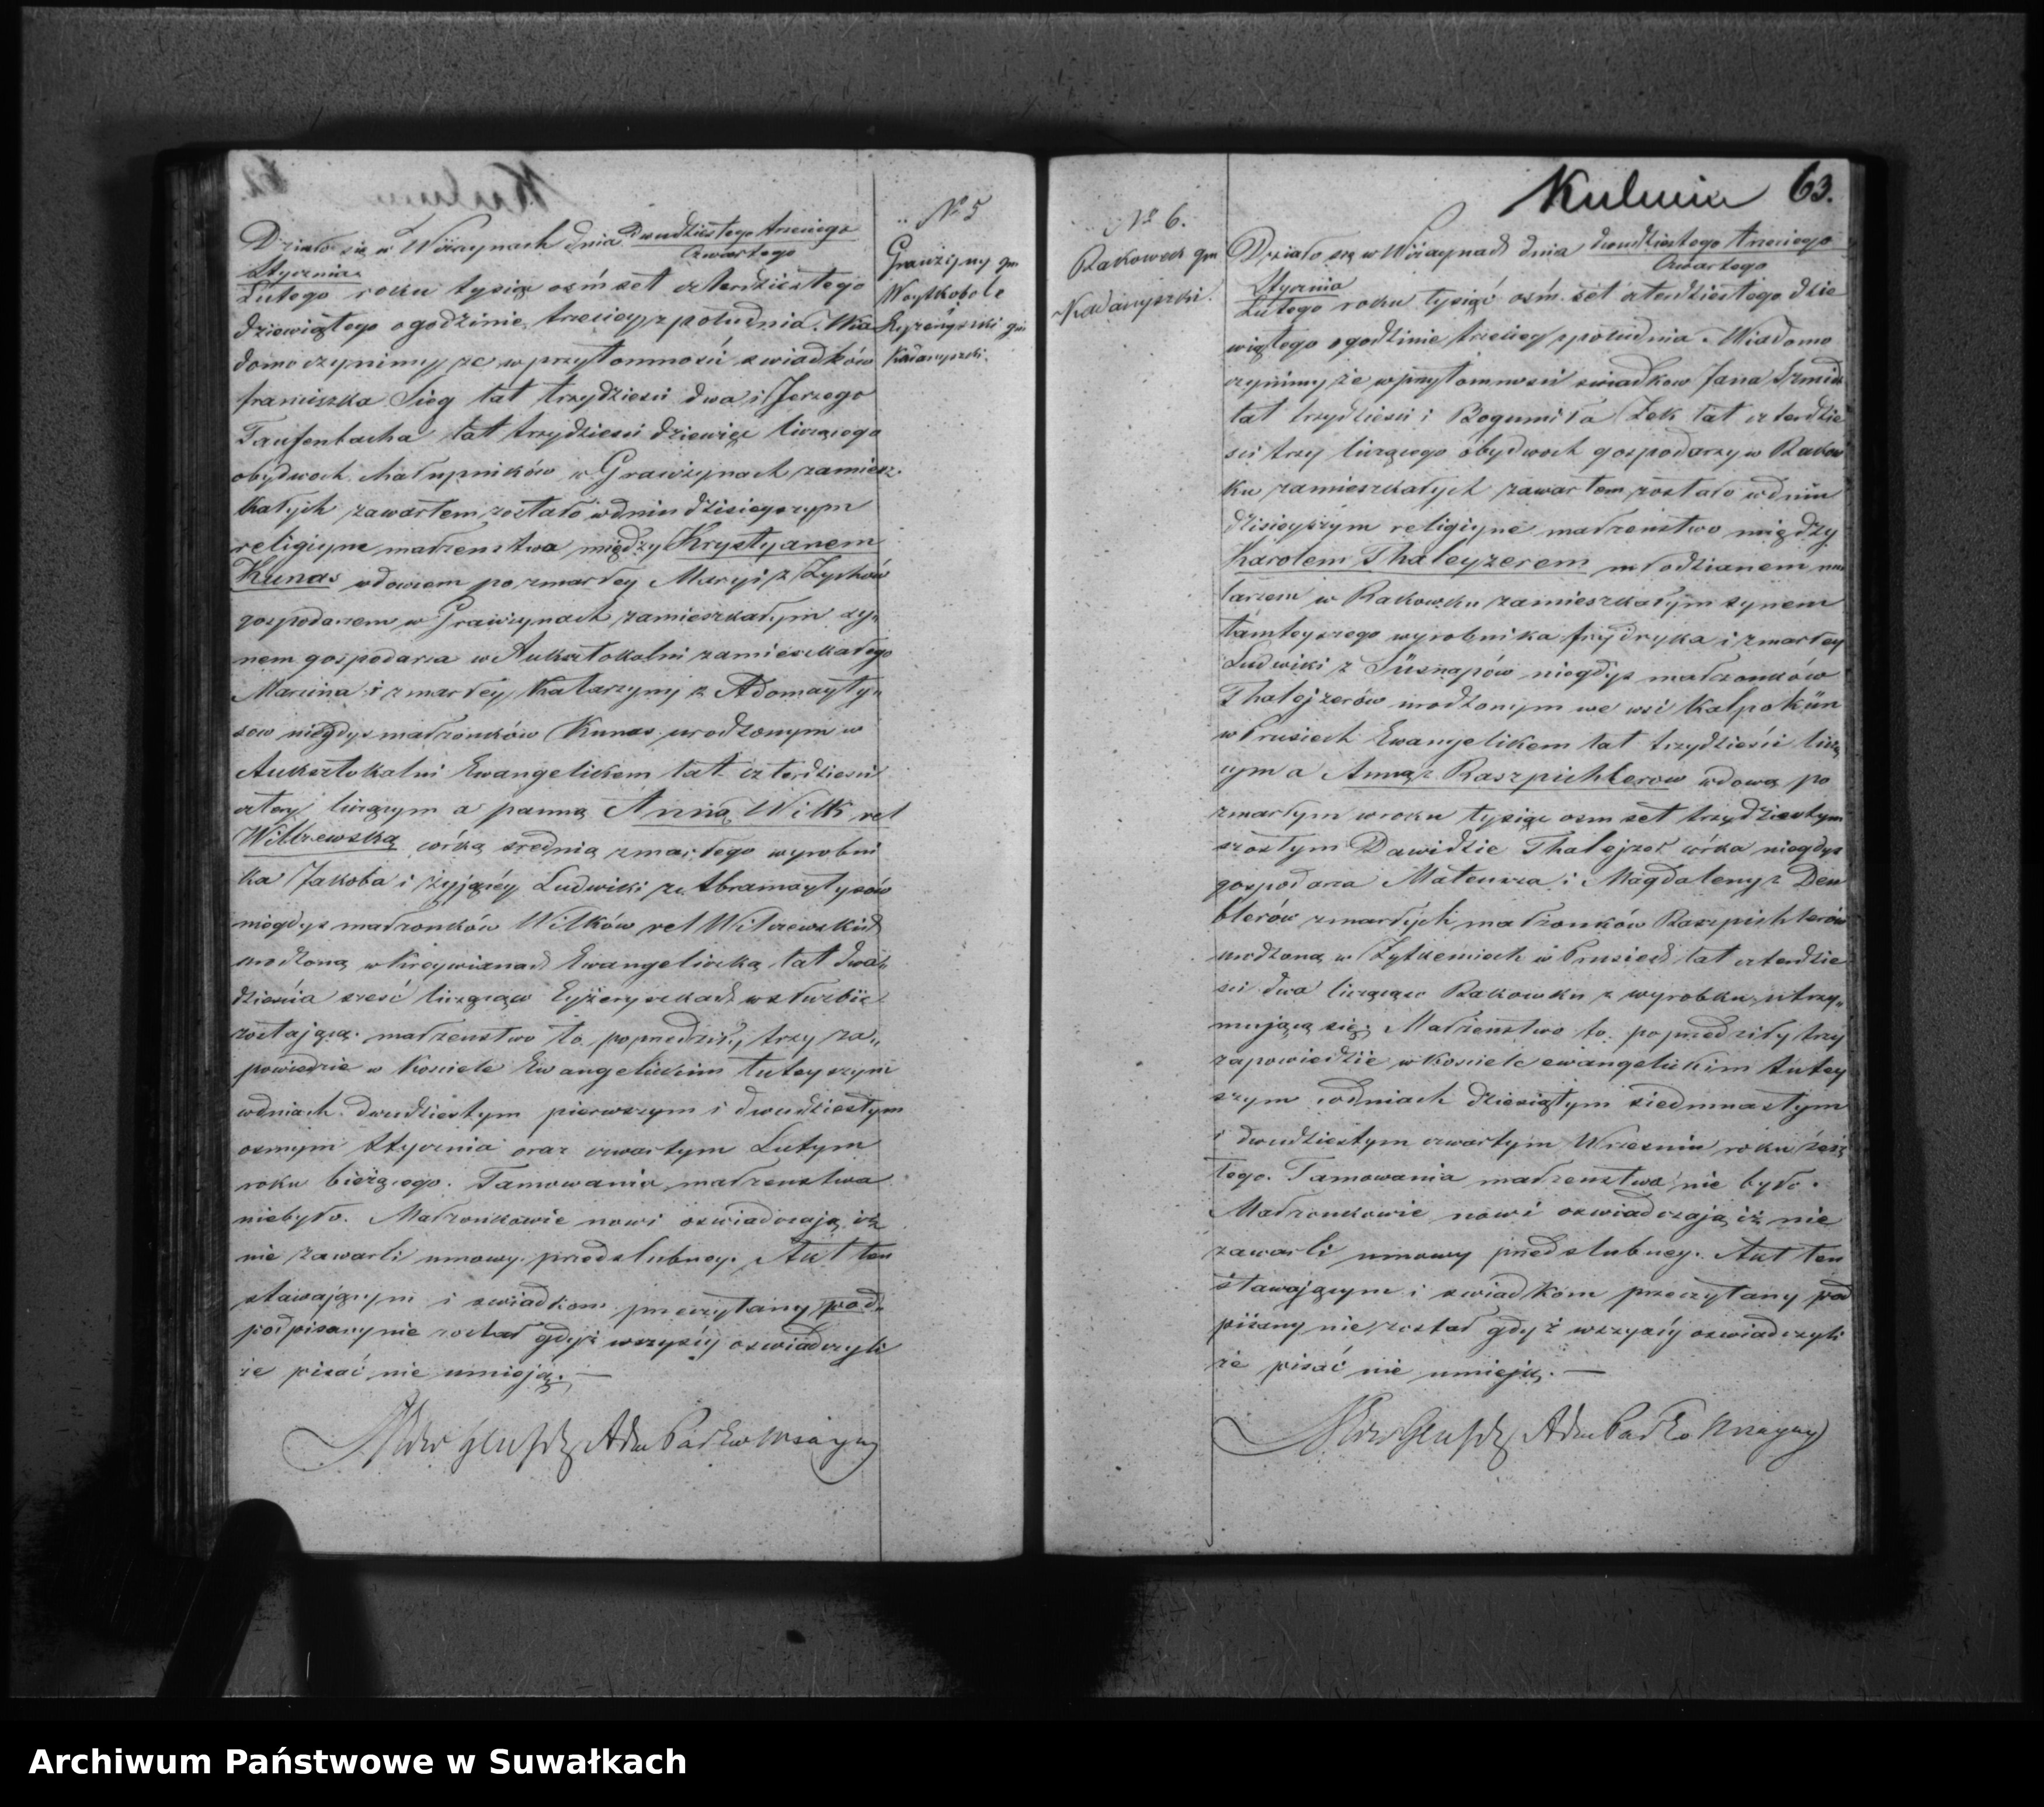 No 5
Grauzyny gm
Woytkobole
gm
Kadaryszki.
Działo się w Wiżaynach dnia dwudziestego trzeciego
Czwartego
Stycznia
Lutego roku tysiąc ośmset czterdziestego
dziewiątego o godzinie trzeciey z południa. Wia
domo czynimy że w przytomności świadków
franciszka Sieg lat trzydzieści dwa i Jerzego
Taufenbacha lat trzydzieści dziewięć liczącego
obydwoch chałupników w Graużynach zamiesz.
kałych zawartem zostało w dniu dzisieyszym
religiyne małżeństwo między Krystyanem
Kunas wdowcem po zmarłey Maryi z Zychów
gospodarzem w Grauzynach zamieszkałym sy„
nem gospodarza w Auksztokalni zamieszkałego
Marcina i zmarłey Katarzyny z Adomayty„
sow niegdys małżonków Kunas urodzonym w
Auksztokalni Ewangelikem lat czterdzieści
cztery liczącym a panną Anną Wilk vel
Wilczewską córką średnią zmarłego wyrobni
ka Jakoba i żyjącéy Ludwiki z Abramaytysów
niegdys małżonków Wilków vel Wilczewskich
urodzoną w Ewangeliczką lat dwa„
dzieścia sześć liczącą w służbie
zostającą. małżenstwo to poprzedziły trzy za„
powiedzie w Kosciele Ewangelickim tuteyszym
w dniach dwudziestym pierwszym i dwudziestym
osmym Stycznia oraz czwartym Lutym
roku bieżącego. Tamowania małżenstwa
niebyło. Małżonkowie nowi oswiadczają iż
nie zawarli umowy przedslubney. Akt ten
stawającym i swiadkom przeczytany pod„
podpisany nie został gdyż wszyscy oswiadczyli
że pisać nie umieją. —
Kulmin 63.
No 6.
Rakowek gm
Kadaryszki.
Działo się w Wiżaynach dnia dwudziestego trzeciego
Czwartego
Stycznia
Lutego roku tysiąć ośm set czterdziestego dzie
wiątego o godzinie trzeciey z południa. Wiadomo
czynimy że w przytomności swiadkow Jana Szmidt
lat trzydziesci i Bogumiła Zek lat czterdzie
sci trzy liczącego obydwoch gospodarzy w Rakow
ku zamieszkałych zawartem zostało w dniu
dzisieyszym religiyne małżeństwo między
Karolem Thaleyzerem młodzianem mu
larzem w Rakowku zamieszkałym synem
tamteyszego wyrobnika frydryka i zmarłey
Ludwiki z niegdys małżonków
Thalejzerów urodzonym we wsi
w Prusiech Ewangelikem lat trzydzieści liczą
cym a Anną z Raszpichlerow wdową po
zmarłym w roku tysiąc osm set trzydziestym
szostym Dawidzie Thalejzer córka niegdys
gospodarza Mateusza i Magdaleny z Den
blerów zmarłych małżonków Raszpichlerów
urodzoną w w Prusiech lat czterdzie
sci dwa liczącą w Rakowku z wyrobku utrzy„
mującą się. Małżeństwo to poprzedziły trzy
zapowiedzie w Kosciele ewangelickim tutey
szym w dniach dziesiątym siedmnastym
i dwudziestym czwartym Wrzesniu roku zesz
łego. Tamowania małżenstwa nie było.
Małżonkowie nowi oswiadczają iż nie
zawarli umowy przedslubney. Akt ten
stawającym i swiadkom przeczytany pod
pisany nie został gdyż wszyscy oswiadczyli
że pisać nie umieją. —
Archiwum Państwowe w Suwałkach